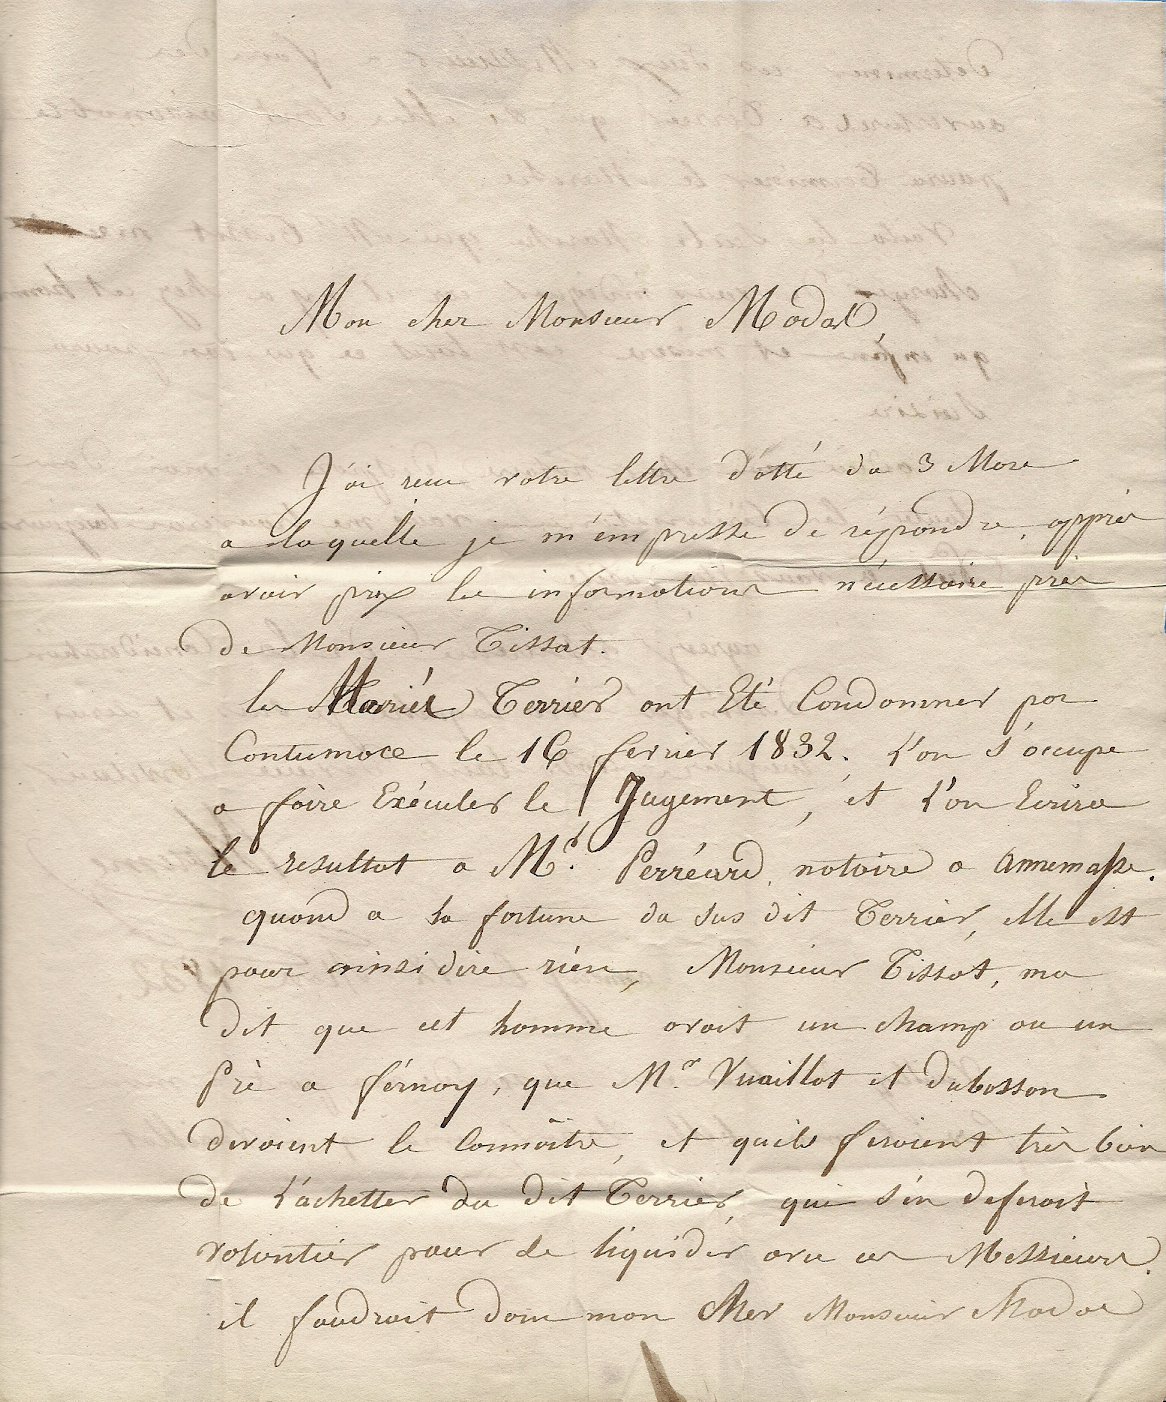 Mon cher Monsieur Modal,
J'ai reçu votre lettre d'atté du 3 Mose
a laquelle je m'émpresse de répondre, apprés
avoir prix les informations nécessaire près
de Monsieur Tissat.
les Mariés Terrier ont Eté Condamner par
Contumace le 16 fevrier 1832. L'on s'occupe
a faire Exécuter le Jugement, et l'on Ecrira
le resultat a Mr. Perréard, notaire a annemasse.
quand a sa fortune du sus dit Terrier, elle est
pour ainsi dire rién, Monsieur Tissot, ma
dit que cet homme avoit un champ ou un
Pré a férnay, que Mr. Vuaillot et dubosson
devoient le connoître, et quils feroient très bien
de l'achetter du dit Terrier, qui s'én deferoit
volontiér pour se liquidér avec ces Messieurs.
il faudroit donc mon Cher Monsieur Modal